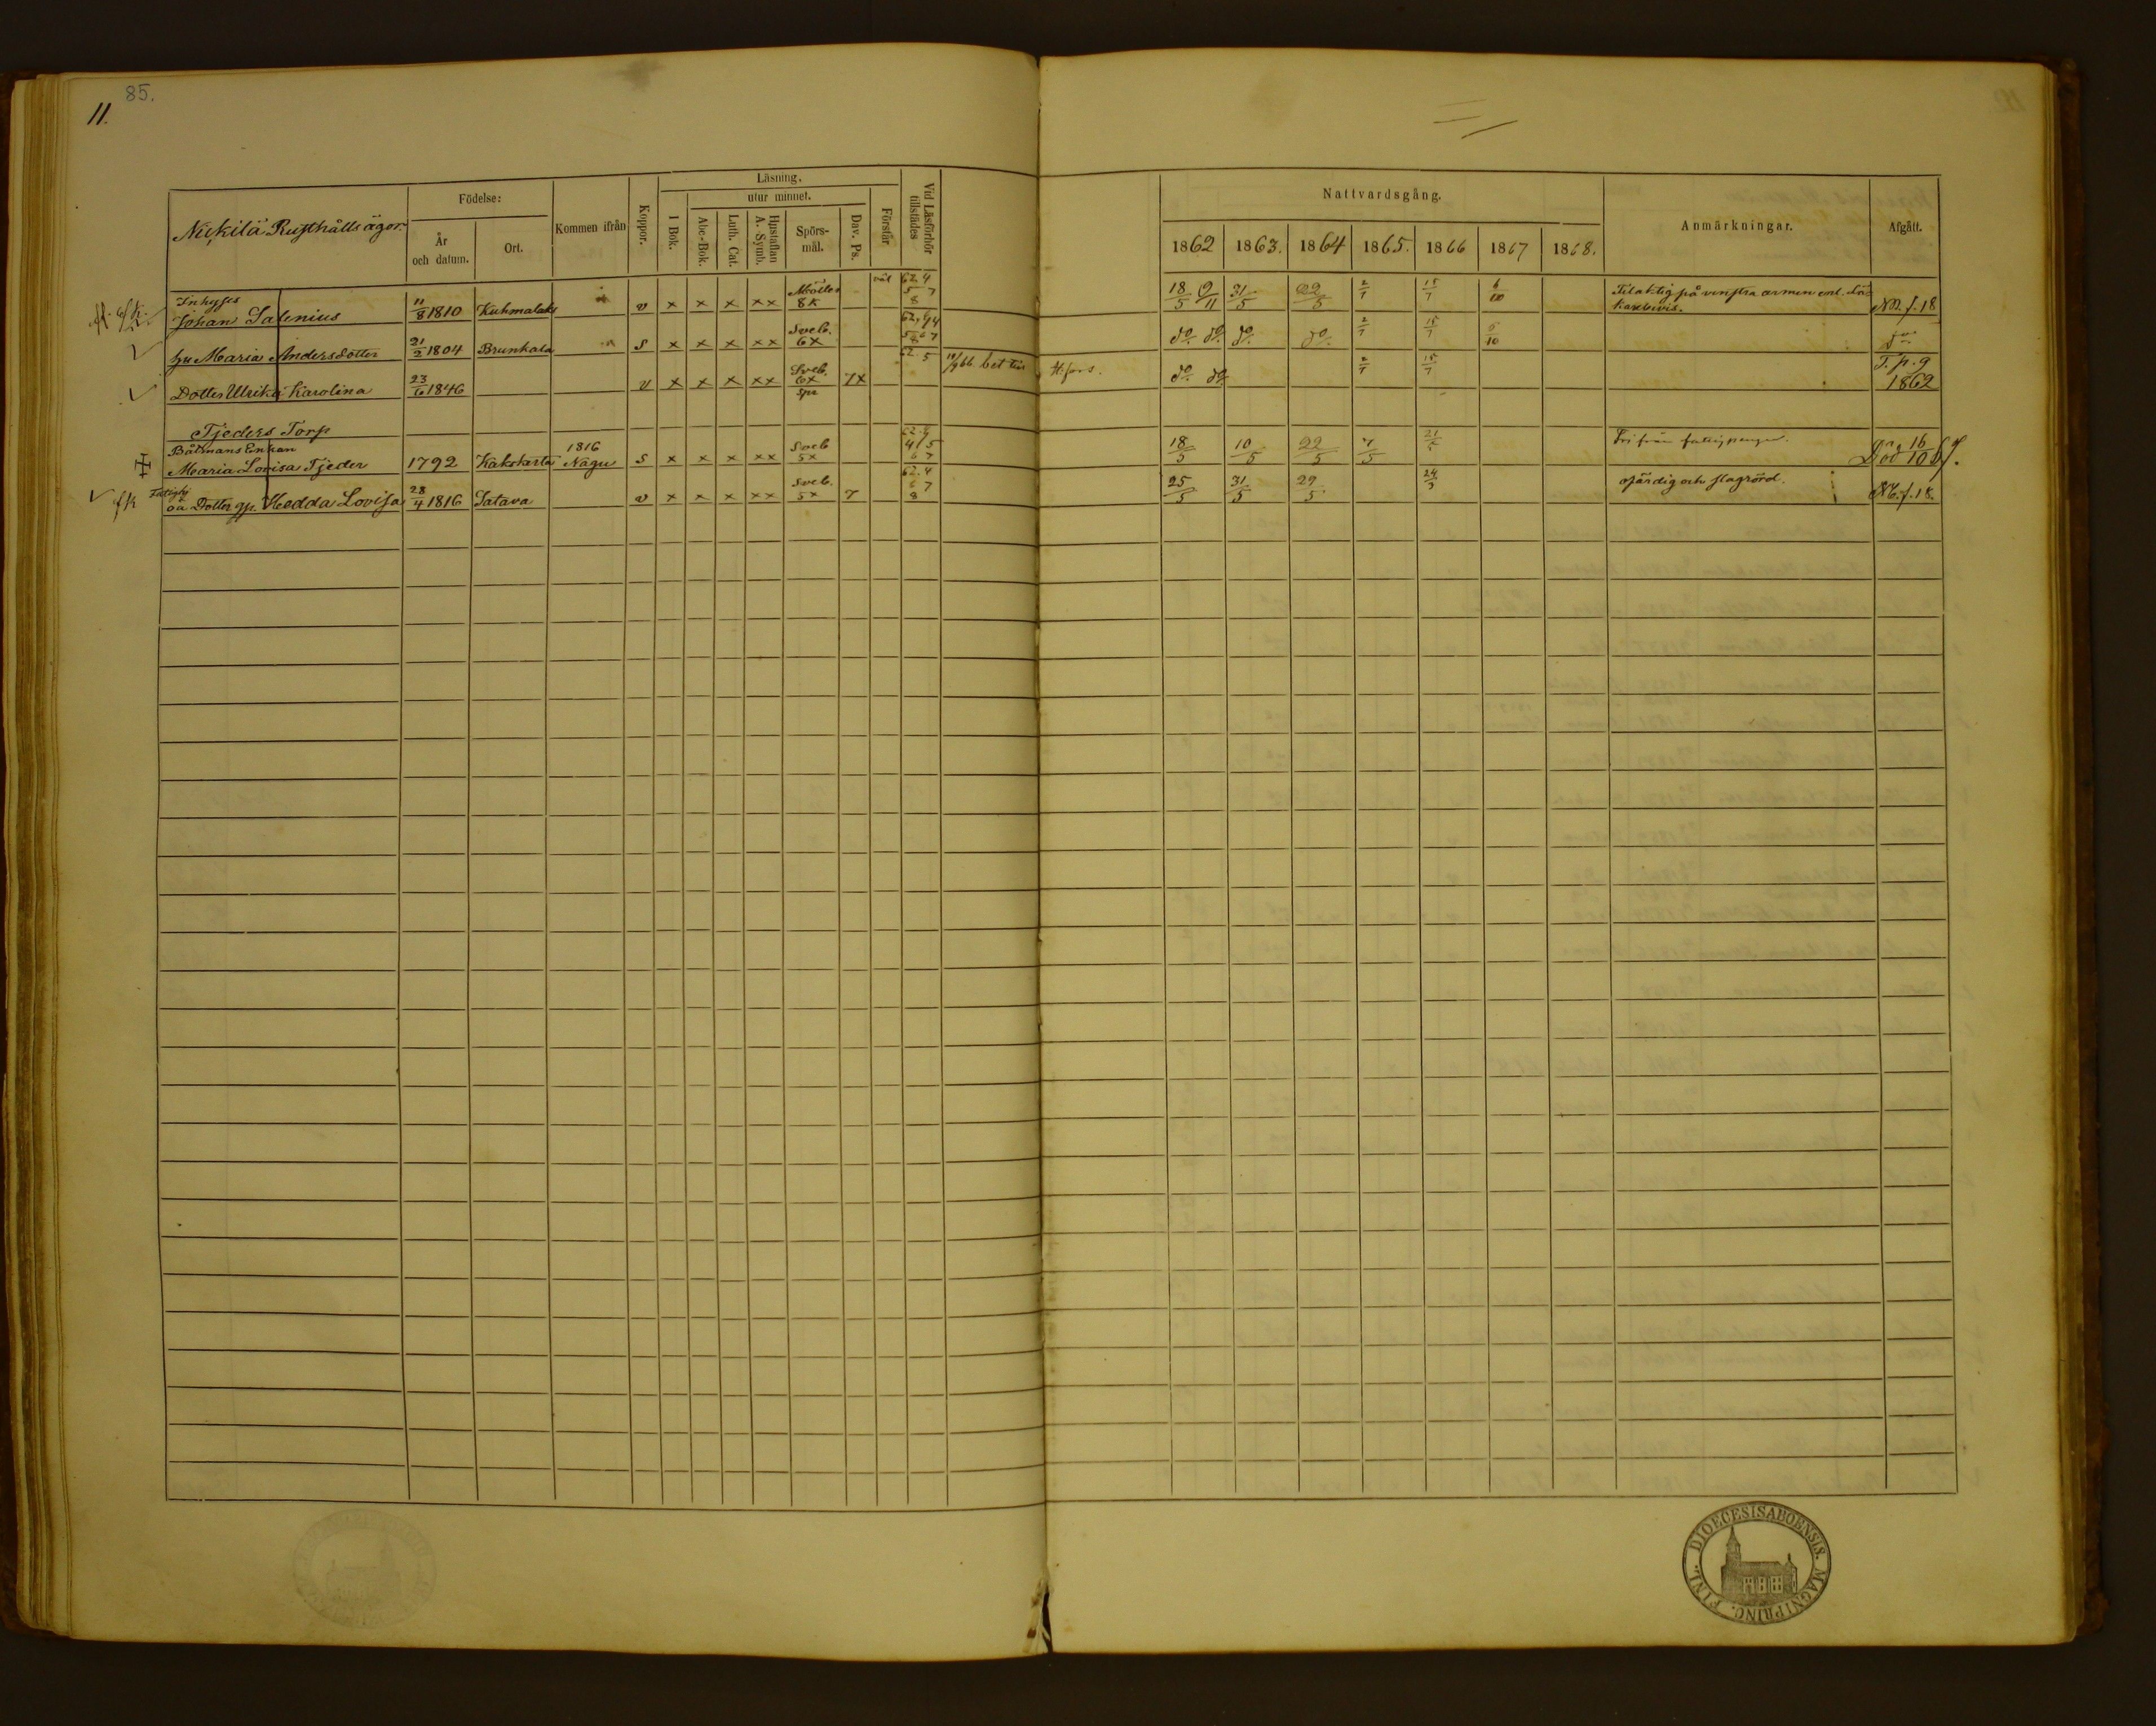 85.
11.
Nickilä Rusthålls ägor.
Födelse:
År och datum.
Ort.
Kommen ifrån
Koppor.
Läsning.
I Bok.
utur minnet.
Abc-Bok.
Luth. Cat.
Hustaflan A. Symb.
Spörsmål.
Dav. Ps.
Förstår
Vid Läsförhör tillstädes
Nattvardsgång.
1862 1863. 1864 1865. 1866 1867 1868.
Anmärkningar.
Afgått.
Inhyses
Johan Salenius 11/8 1810 Kuhmalaks v x x x xx 8x 62. 4 5 7 8 18/5 9/11 31/5 22/5 2/7 15/7 6/10 på venstra armen enl. Läkarebevis. NB. f. 18
hu Maria Andersdotter 21/2 1804 Brunkala s x x x xx Sveb. 6x do do do do 2/7 15/7 6/10 do
Dotter Ulrika Karolina 23/6 1846 v x x x xx Sveb. 6x 7x 62. 5 H:fors. do do 2/7 15/7 T. p. 9 1862
Tjeders Torp
Båtmans Enkan
Maria Lovisa Tjeder 1792 Kakskarta 1816 Nagu s x x x xx Sveb 5x 18/5 10/5 22/5 Fri från fattigpengar. Död 16/10 67.
Dotter Hedda Lovisa 28/4 1816 Satava v x x x xx Sveb. 5x 7 62. 4 7 8 25/5 31/5 29/5 ofärdig och slagrörd. NB. f. 18.
DIOECESIS ABOENSIS. MAGNI PRINC. FINL.